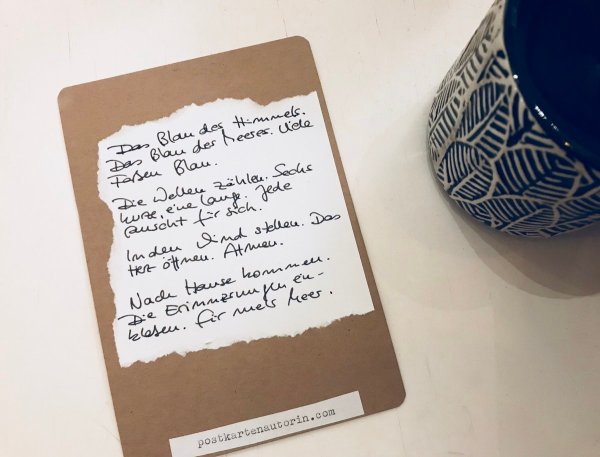 Das Blau des Himmels.
Das Blau des Meeres. Viele
Tassen Blau.
Die Wellen zählen. Sechs
kurze, eine lange. Jede
rauscht für sich.
In den Wind stellen. Das
Herz öffnen. Atmen.
Nach Hause kommen.
Die Erinnerungen ein-
kleben. Für mehr Meer.
postkartenautorin.com